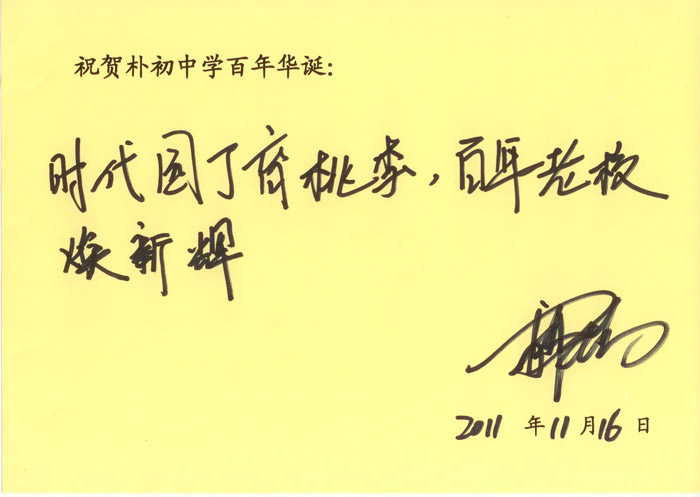 祝贺朴初中学百年华诞:
时代园丁育桃李，百年老校
焕新辉
2011 年 11 月 16 日